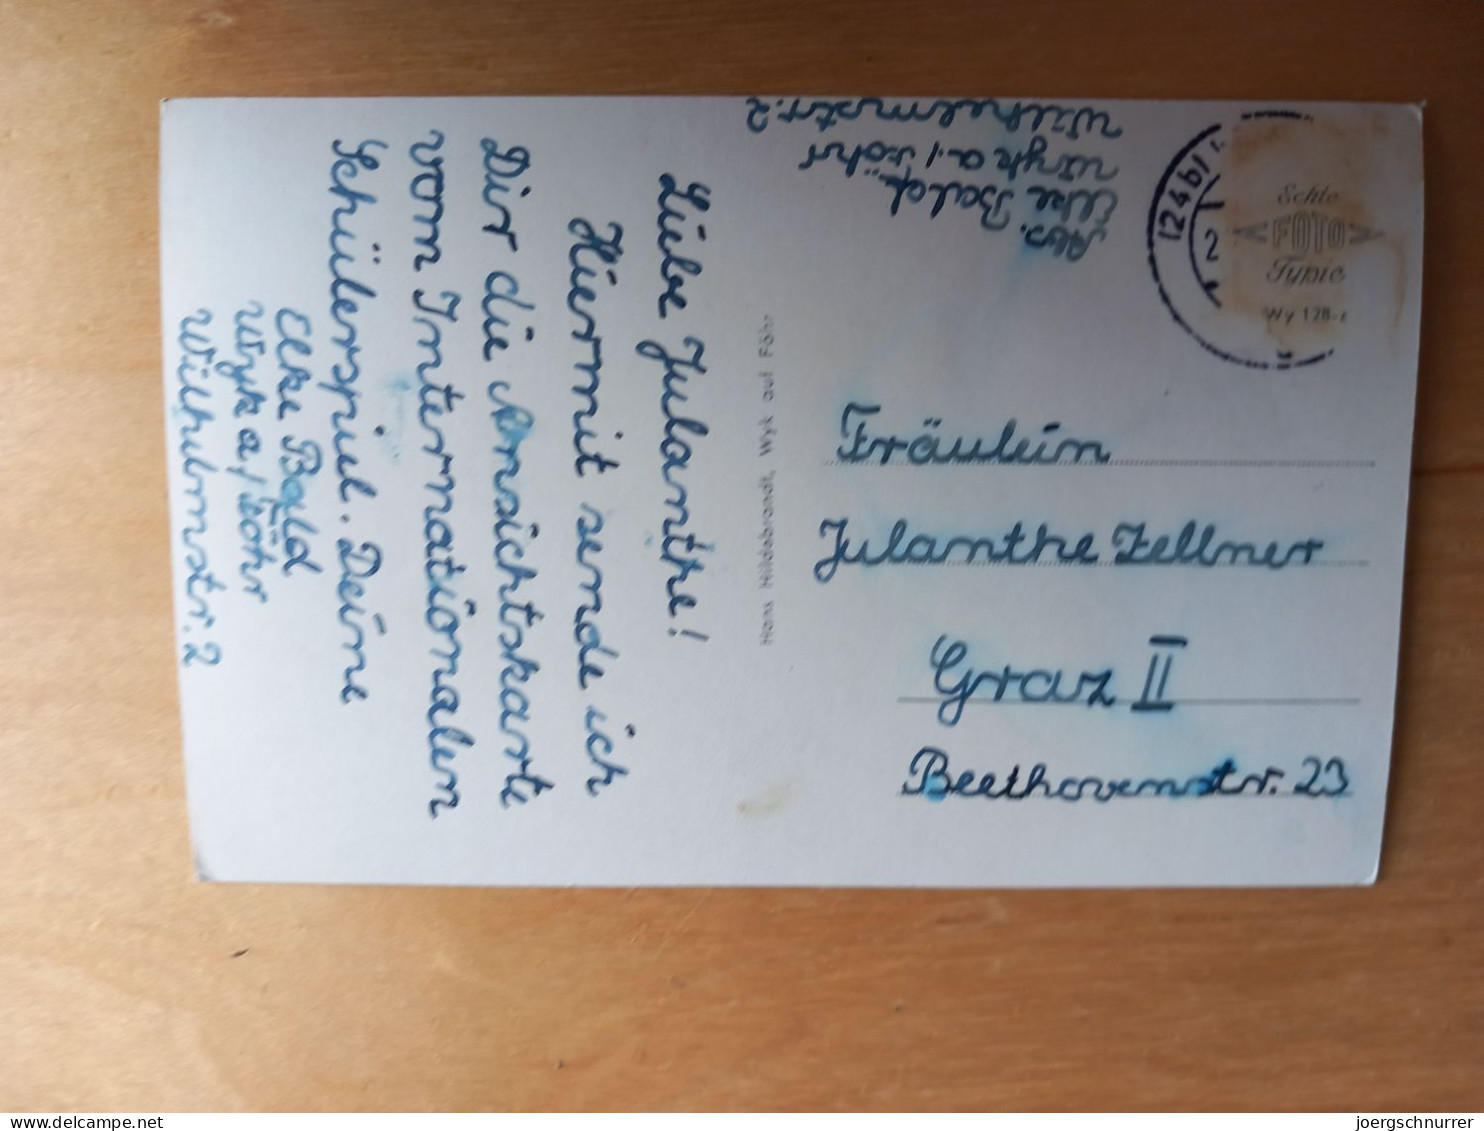 Liebe Julanthe!
Hiermit sende ich
Dir die Ansichtskarte
vom Internationalen
Schülerspiel. Deine
Elke Bald
Wyk a/Föhr
Wilhelmstr. 2
Hans Hildebrandt, Wyk auf Föhr
Abs.
Elke Bald
Wyk a/Föhr
Wilhelmstr. 2
(24b)
2
Echte
FOTO
Typie
Wy 128-z
Fräulein
Julanthe Zellner
Graz II
Beethovenstr. 23
www.delcampe.net
joergschnurrer